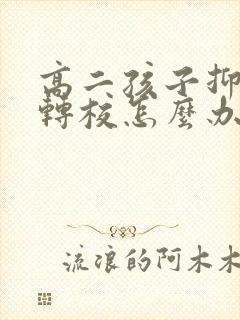 高二孩子抑
轉校怎麼办
流浪的阿木木